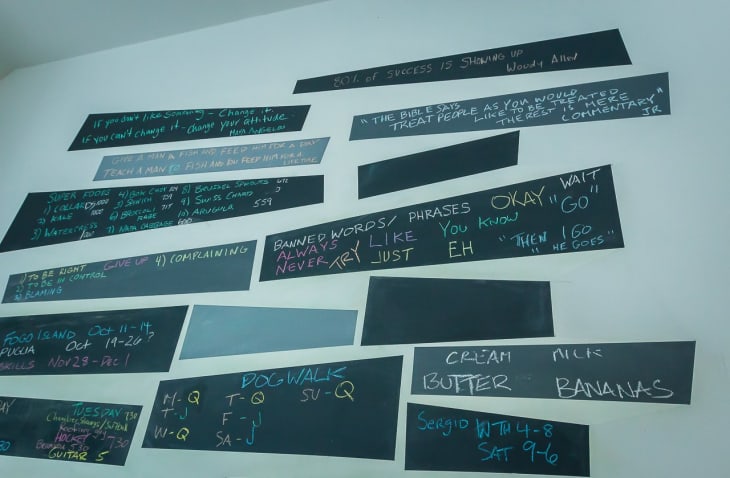 80% OF SUCCESS IS SHOWING UP
Woody Allen
If you don't like something - Change it.
If you can't change it - change your attitude.
MAYA ANGELOU
"THE BIBLE SAYS
TREAT PEOPLE AS YOU WOULD
LIKE TO BE TREATED
THE REST IS MERE
COMMENTARY"
JR
GIVE A MAN A FISH AND FEED HIM FOR A DAY
TEACH A MAN TO FISH AND YOU FEED HIM FOR A
LIFETIME
SUPER FOODS
1) COLLARDS
2) KALE
3) WATERCRESS
4) BOK CHOY
5) SPINACH
6) BROCCOLI
RABE
7) NAPA CABBAGE
8) BRUSSEL SPROUTS
9) SWISS CHARD
10) ARUGULA 559
BANNED WORDS/ PHRASES OKAY WAIT
ALWAYS LIKE YOU KNOW "GO"
NEVER TRY JUST EH "THEN I GO
"HE GOES"
GIVE UP
1) TO BE RIGHT
2) TO BE IN CONTROL
3) BLAMING
4) COMPLAINING
FOGO ISLAND Oct 11-14
PUGLIA Oct 19-26?
SKILLS NOV 28 - DEC 1
CREAM MILK
BUTTER BANANAS
DOGWALK
M - Q T - Q SU - Q
T - J F - J
W - Q SA - J
Sergio W TH 4-8
SAT 9-6
TUESDAY 730
HOCKEY 730
GUITAR 5